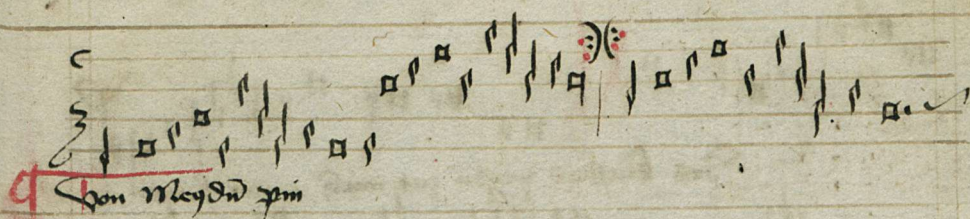 von meydn̄ pin